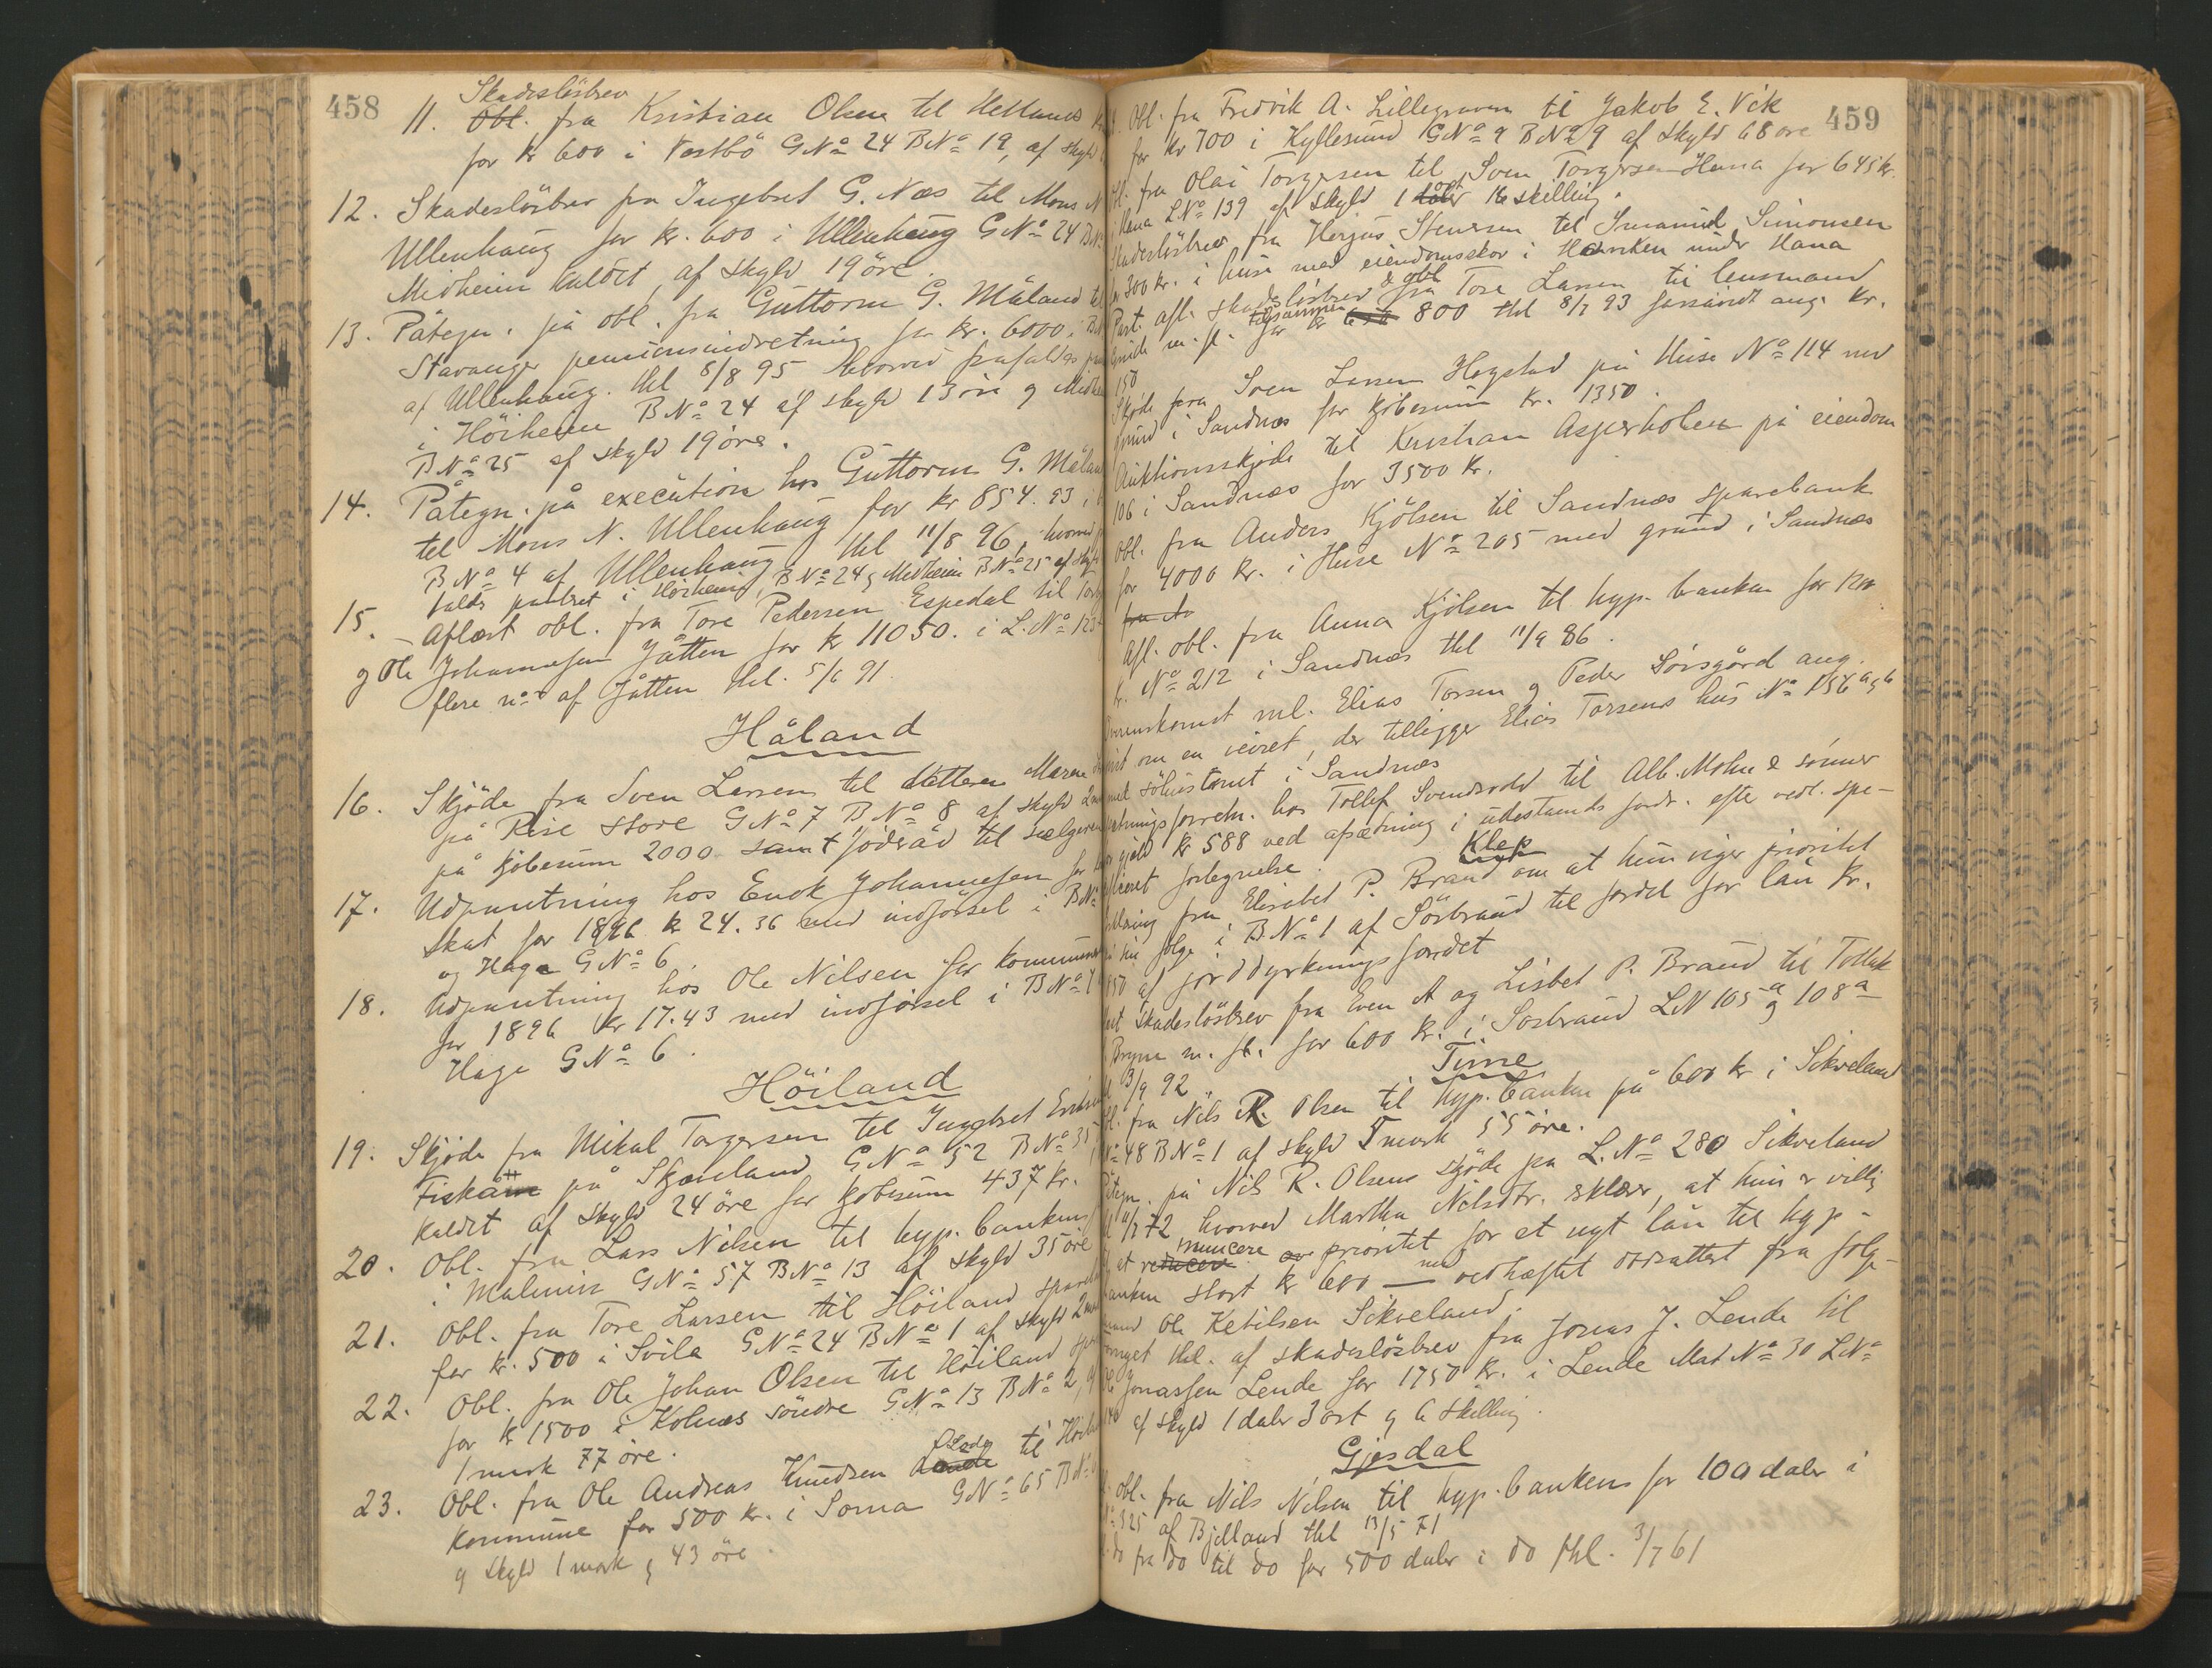 458
Skadeslösbrev
11. Obl. fra Kristian Olsen til Hetlands
for kr 600 i Vastbö GNo 24 BNo 19, af skyld
12. Skadeslösbrev fra Ingebret G. Næs til Mons N
Ullenhaug for kr. 600 i Ullenhaug GNo 24 BNo
Midheim kaldet, af skyld 19 öre.
13. Påtegn. på obl. fra Guttorm G. Måland til
Stavanger pensionsindretning for kr. 6000 i BN
af Ullenhaug. thl 8/8 95 hvorved frafaldes
i Höiheim BNo 24 af skyld 13 öre og Midhei
BNo 25 af skyld 19 öre.
14. Påtegn. på execution hos Guttorm G. Målan
til Mons N. Ullenhaug for kr 854.93 i
BNo 4 af Ullenhaug thl 11/8 96, hvorved
falds pantret i Höiheim, BNo 24 og Midheim BNo 25 af sky
15. Aflæst obl. fra Tore Pedersen Espedal til
og Ole Johannesen Jåtten for kr 11050. i L.No 123
flere no af Jåtten thl. 5/6 91.
Håland
16. Skjöde fra Sven Larsen til datteren Maren
på Reise store GNo 7 BNo 8 af skyld 2
på kjöbesum 2000 samt föderåd til sælgeren
17. Udpantning hos Enok Johannesen for
skat for 1896 kr 24.36 med indförsel i BNo
og Haga GNo 6.
18. Udpantning hos Ole Nilsen for kommune
for 1896 kr 17.43 med indförsel i BNo 1
Haga GNo 6.
Höiland
19. Skjöde fra Mikal Torgersen til Ingebret
på Skjæveland GNo 52 BNo 35
kaldet af skyld 24 öre for kjöbesum 437 kr.
20. Obl. fra Lars Nilsen til hyp. bankens
i Malmin GNo 57 BNo 13 af skyld 35 öre
21. Obl. fra Tore Larsen til Höiland spareb
for kr. 500 i Svila GNo 24 BNo 1 af skyld 2
22. Obl. fra Ole Johan Olsen til Höiland
for kr 1500 i Kolnes söndre GNo 13 BNo 2,
1 mark 77 öre.
23. Obl. fra Ole Andreas Knudsen til Höila
kommune for 500 kr. i Soma GNo 65 BNo
af skyld 1 mark og 43 öre.
459
Obl. fra Fredrik A. Lillegraven til Jakob E. Vik
for kr 700 i Kyllesund GNo 9 BNo 9 af skyld 68 öre
fra Olai Torgersen til Sven Torgersen Hana for 645 kr.
Hana LNo 139 af skyld 1 ort 16 skilling.
Skadeslösbrev fra Herjus Stensen til Emanuel Simonsen
300 kr. i huse med eiendomsskov i Hanken under Hana
Part. afl. skadeslösbrev & obl fra Tore Larsen til lensmand
m. fl. tilsammen for kr 800 thl 8/7 93 forsåvidt ang. kr.
150
Skjöde fra Sven Larsen Hogstad på Huse No 114 med
grund i Sandnæs for kjöbesum kr. 1350.
Auktionsskjöde til Kristian Asperholen på eiendom
106 i Sandnæs for 3500 kr.
Obl. fra Anders Kjölsen til Sandnæs sparebank
for 4000 kr. i Huse No 205 med grund i Sandnæs
Afl. obl. fra Anna Kjölsen til hyp. banken for 1200
kr. No 212 i Sandnæs thl 11/9 86.
Overenskomst ml. Elias Torsen og Peder Sörsgård ang.
om en veiret, der tilligger Elias Torsens hus No 156 a og b
sölustomt i Sandnæs
hos Tollef Svendsvold til Alb. Mohn & sönner
gjeld kr 588 ved afsætning i udestaaende fordr. efter vedl. spe-
fortegnelse.
Klep
fra Elisabet P. Braud om at hun viger prioritet
for sin fölge i BNo 1 af Sörbraud til fordel for lån kr.
af jorddyrkningsfondet
Skadeslösbrev fra Even A og Lisbet P. Braud til Tollak
Bryne m. fl. for 600 kr. i Sörbraud LN 105a og 108a
13/9 92.
Time
fra Nils R. Olsen til hyp. banken på 600 kr i Sikveland
GNo 48 BNo 1 af skyld 5 mark 55 öre.
Påtegn. på Nils R. Olsens skjöde på L.No 280 Sikveland
72 hvorved Martha Nilsdtr. erklærer, at hun er villig
at prioritet for et nyt lån til hyp-
banken stort kr 600 — med vedhæftet odelsattest fra folge-
mand Ole Ketilsen Sikveland.
thl. af skadeslösbrev fra Jonas J. Lende til
Ole Jonassen Lende for 1750 kr. i Lende Mat No 30 LNo
af skyld 1 daler 3 ort og 6 skilling.
Gjesdal
Obl. fra Nils Nilsen til hyp. bankens for 100 daler i
No 325 af Bjelland thl 13/5 71
do fra do til do for 500 daler i do thl. 3/7 61